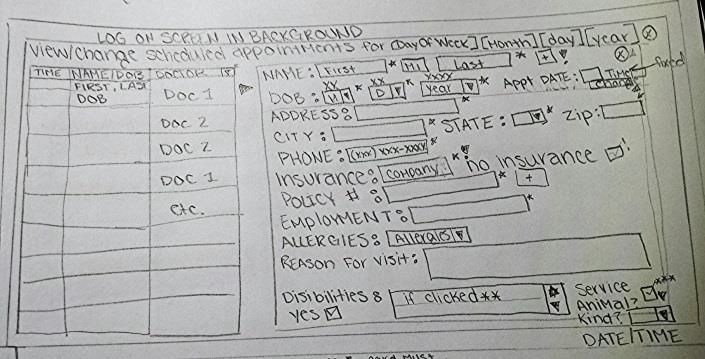 LOG ON SCREEN IN BACKGROUND
View/Change scheduled appointments for [Day Of Week] [Month] [day] [year] X
TIME NAME/DOB DOCTOR
FIRST, LAST
DOB
DOC 1
DOC 2
DOC 2
DOC 1
Etc.
NAME: First * MI Last * + X
XX XX XXXX fixed
DOB: M * D * Year * Appt DATE: TIME
Change
ADDRESS: *
CITY: * STATE: * Zip:
PHONE: (xxx) xxx-xxxx *
Insurance: Company * no insurance
POLICY #: * +
EMPLOYMENT: *
ALLERGIES: Allergies
REASON FOR VISIT:
Disibilities: If clicked **
YES
Service ***
Animal?
Kind?
DATE/TIME